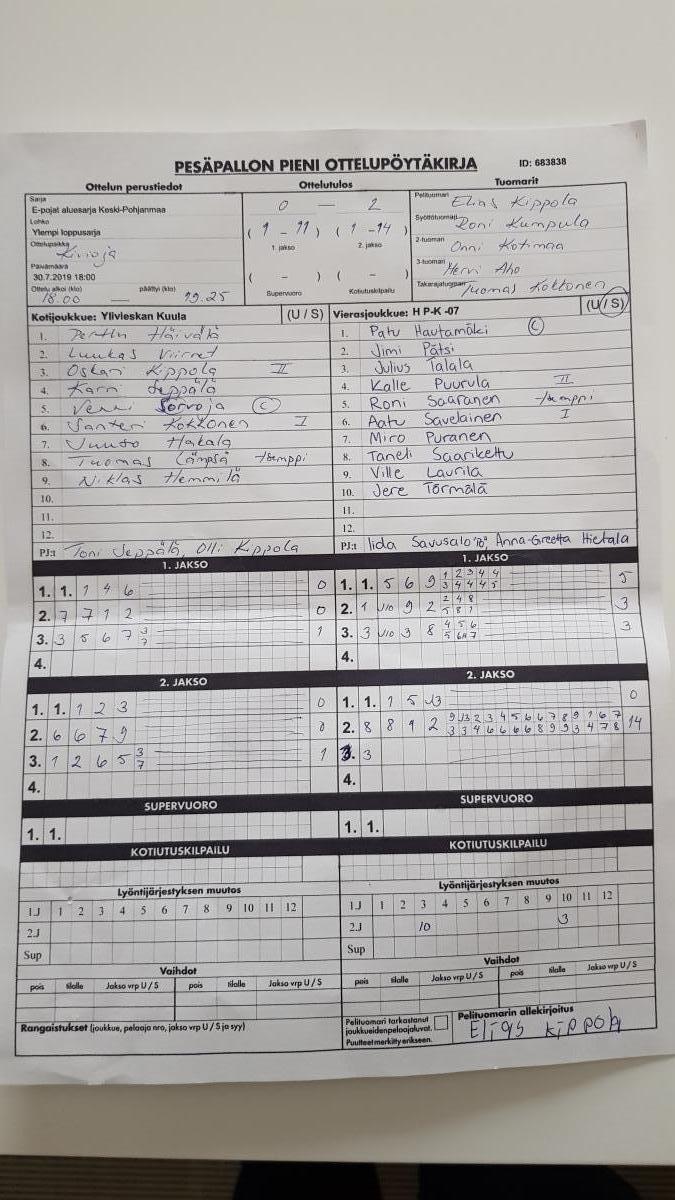 PESÄPALLON PIENI OTTELUPÖYTÄKIRJA ID: 683838
Ottelun perustiedot Ottelutulos Tuomarit
Sarja
E-pojat aluesarja Keski-Pohjanmaa
Lohko
Ylempi loppusarja
Ottelupaikka
Kivioja
Päivämäärä
30.7.2019 18:00
Ottelu alkoi (klo) päättyi (klo)
18.00 — 19.25
0 — 2
( 1 - 11 ) ( 1 - 14 )
1. jakso 2. jakso
( - ) ( - )
Supervuoro Kotiutuskilpailu
Pelituomari Elias Kippola
Syöttötuomari Roni Kumpula
2-tuomari Onni Kotimaa
3-tuomari Hervi Aho
Takarajatuomari Tuomas Kokkonen
Kotijoukkue: Ylivieskan Kuula (U / S)
1. Perttu Häivälä
2. Luukas Viirret
3. Oskari Kippola II
4. Karri Seppälä
5. Sorvoja C
6. Santeri Kokkonen I
7. Juuso Hakala
8. Tuomas Lämpsä
9. Niklas Hemmilä
10.
11.
12.
PJ:t Toni Seppälä, Olli Kippola
Vierasjoukkue: H P-K -07 (U / S)
1. Patu Hautamäki C
2. Jimi Pätsi
3. Julius Talala
4. Kalle Puurula II
5. Roni Saaranen
6. Aatu Savelainen I
7. Miro Puranen
8. Taneli Saarikettu
9. Ville Laurila
10. Jere Törmälä
11.
12.
PJ:t Iida Savusalo, Anna-Greetta Hietala
1. JAKSO
1. 1. 1 4 6 0
2. 7 7 1 2 0
3. 3 5 6 7 3 7 1
4.
2. JAKSO
1. 1. 1 2 3 0
2. 6 6 7 9 0
3. 1 2 6 5 3 7 1
4.
SUPERVUORO
1. 1.
KOTIUTUSKILPAILU
1. JAKSO
1. 1. 5 6 9 1 2 3 4 4 5
3 4 4 4 5
2. 1 V10 9 2 2 4 8 3
5 8 1
3. 3 V10 3 8 4 5 6 3
4.
2. JAKSO
1. 1. 1 5 0
2. 8 8 9 2 14
3. 3
4.
SUPERVUORO
1. 1.
KOTIUTUSKILPAILU
Lyöntijärjestyksen muutos
1.J 1 2 3 4 5 6 7 8 9 10 11 12
2.J
Sup
Vaihdot
pois tilalle Jakso vrp U / S pois tilalle Jakso vrp U / S
Rangaistukset (joukkue, pelaaja nro, jakso vrp U / S ja syy)
Lyöntijärjestyksen muutos
1.J 1 2 3 4 5 6 7 8 9 10 11 12
2.J 10 3
Sup
Vaihdot
pois tilalle Jakso vrp U / S pois tilalle Jakso vrp U / S
Pelituomari tarkastanut
joukkueidenpelaajaluvat.
Puutteet merkitty erikseen.
Pelituomarin allekirjoitus
Elias Kippola